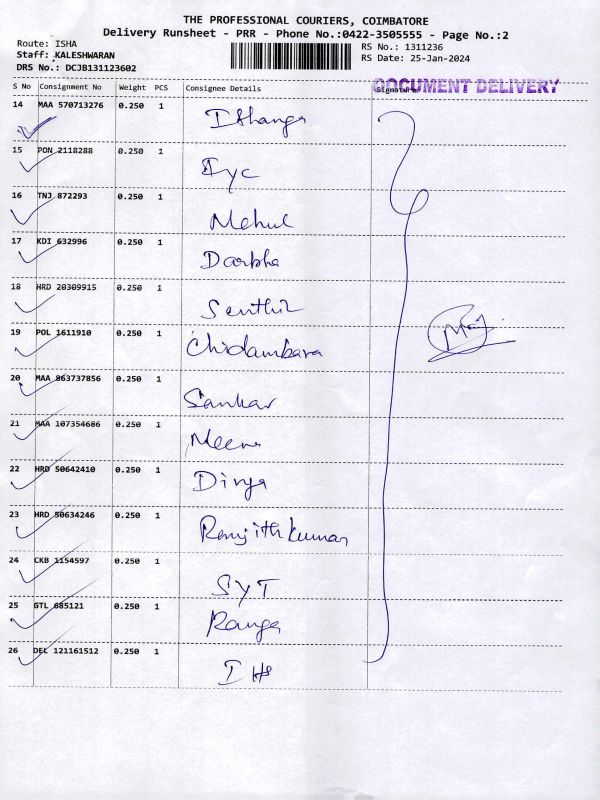 THE PROFESSIONAL COURIERS, COIMBATORE
Delivery Runsheet - PRR - Phone No.:0422-3505555 - Page No.:2
Route: ISHA
RS No.: 1311236
Staff: KALESHWARAN
RS Date: 25-Jan-2024
DRS No.: DCJB131123602
DOCUMENT DELIVERY
S No Consignment No Weight PCS Consignee Details Signature
14 MAA 570713276 0.250 1 Ishanga
15 PON 2118288 0.250 1 Iyc
16 TNJ 872293 0.250 1 Mehul
17 KDI 632996 0.250 1 Darbha
18 HRD 20309915 0.250 1 Senthil
19 POL 1611910 0.250 1 Chidambara
20 MAA 863737856 0.250 1 Sankar
21 MAA 107354686 0.250 1 Meena
22 HRD 50642410 0.250 1 Divya
23 HRD 50634246 0.250 1 Ranjith kumar
24 CKB 1154597 0.250 1 SYT
25 GTL 685121 0.250 1 Ranga
26 DEL 121161512 0.250 1 IHS